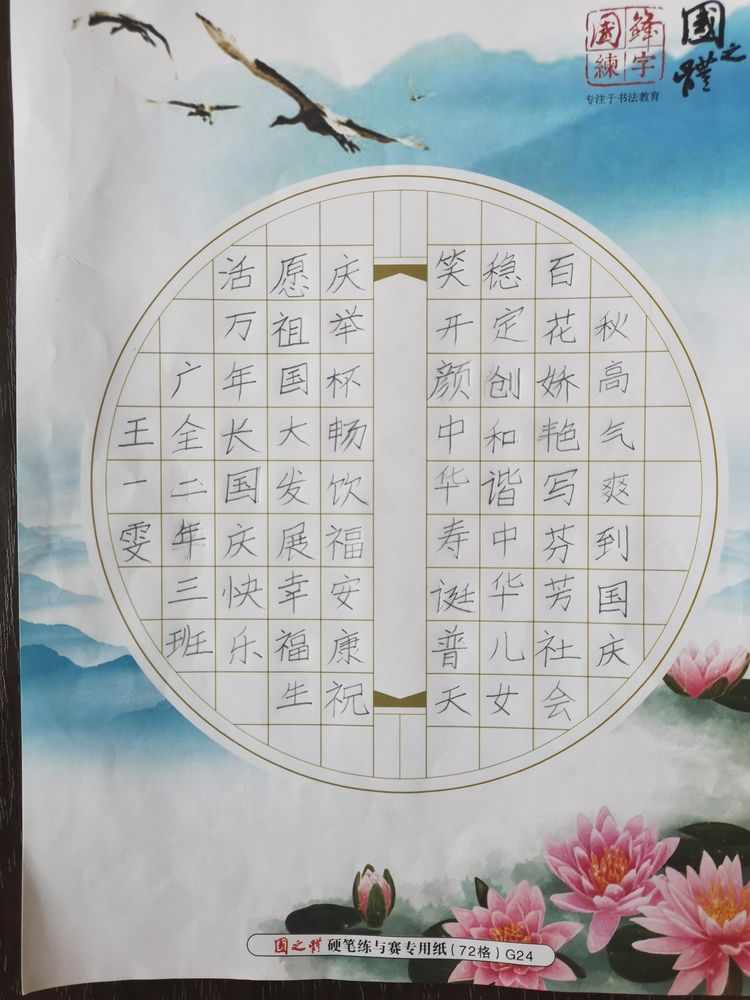 國鋒
練字
专注于书法教育
國之
秋高气爽到国庆
百花娇艳写芬芳社会
稳定创和谐中华儿女
笑开颜中华寿诞普天
庆举杯畅饮福安康祝
愿祖国大发展幸福生
活万年长国庆快乐
广全二年三班
王一雯
國之 硬笔练与赛专用纸(72格)G24